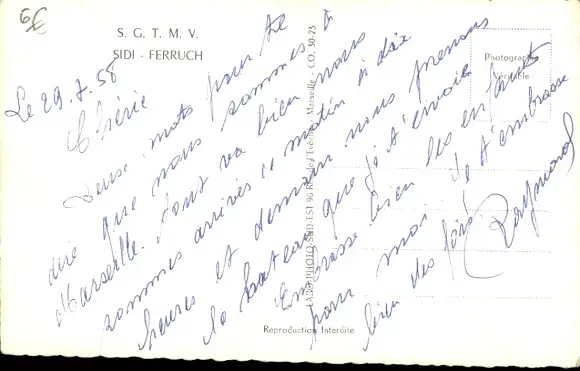 6€
S. G. T. M. V.
SIDI - FERRUCH
Photographie
Véritable
LABO PHOTO-SUD-EST 96 Rue de l'Evêché - Marseille - CO. 30-23
Reproduction Interdite
Le 29.7.58
Chérie
Deux mots pour te
dire que nous sommes à
Marseille. Tout va bien nous
sommes arrivés ce matin à dix
heures et demain nous prenons
le bateau que je t'envoie
Embrasse bien les enfants
pour moi Je t'embrasse
bien des fois
Raymond